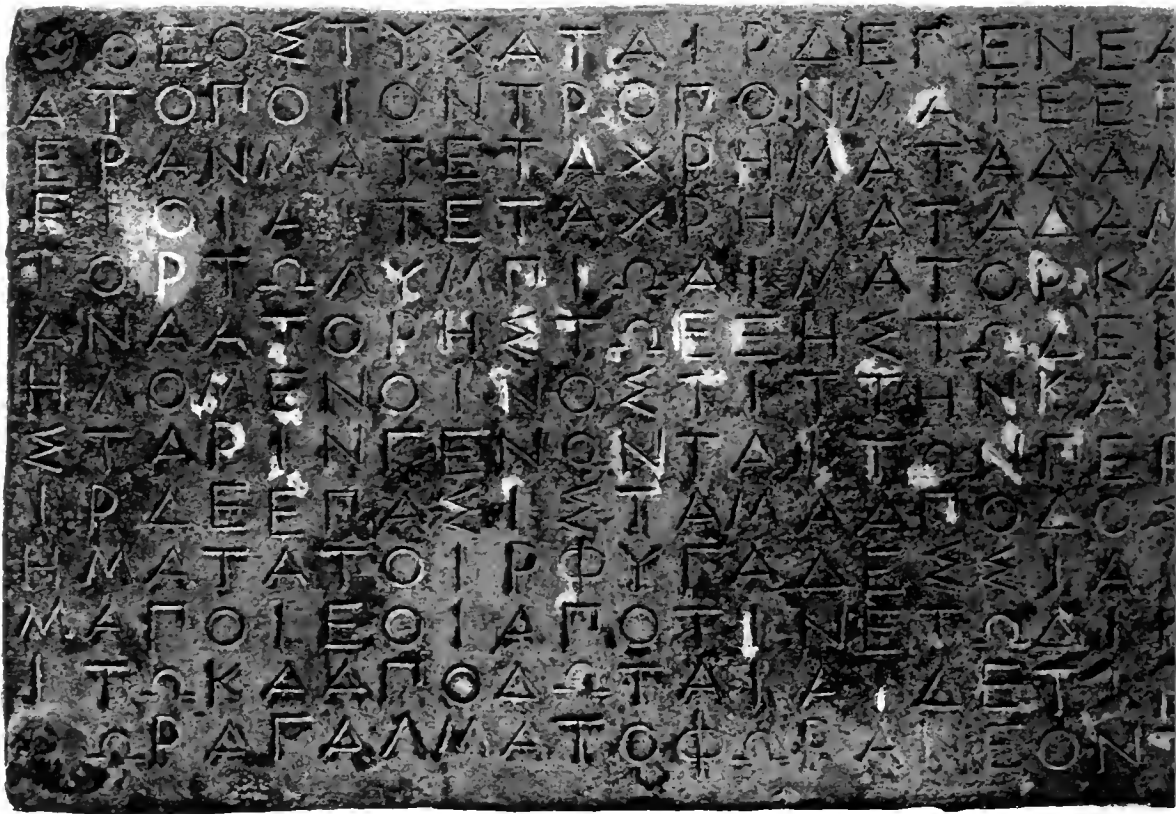 ΘΕΟΣΤΥΧΑΤΑΙΡΔΕΓΕΝΕΑ
ΑΤΟΠΟΙΟΝΤΡΟΠΟΝΜΑΤΕΕΡ
ΕΡΑΝΜΑΤΕΤΑΧΡΗΜΑΤΑΔΑΜ
ΕΙΟΙΑΙΤΕΤΑΧΡΗΜΑΤΑΔΑΜ
ΙΟΡΤΩΛΥΜΠΙΩΑΙΜΑΤΟΡΚΑ
ΑΝΑΑΤΟΡΗΣΤΩΕΞΗΣΤΩΔΕΚ
ΗΛΟΜΕΝΟΙΝΟΣΤΙΤΤΗΝΚΑΙ
ΣΤΑΡΙΝΓΕΝΩΝΤΑΙΤΩΝΠΕΡ
ΙΡΔΕΕΠΑΣΙΣΤΑΜΑΑΠΟΔΟΣ
ΗΜΑΤΑΤΟΙΡΦΥΓΑΔΕΣΣΙΑΙ
ΜΑΠΟΙΕΟΙΑΠΟΤΙΝΕΤΩΔΙΠ
ΙΤΩΚΑΑΠΟΔΩΤΑΙΑΙΔΕΤΙ
ΩΡΑΓΑΛΜΑΤΟΦΩΡΑΝΕΟΝΤ